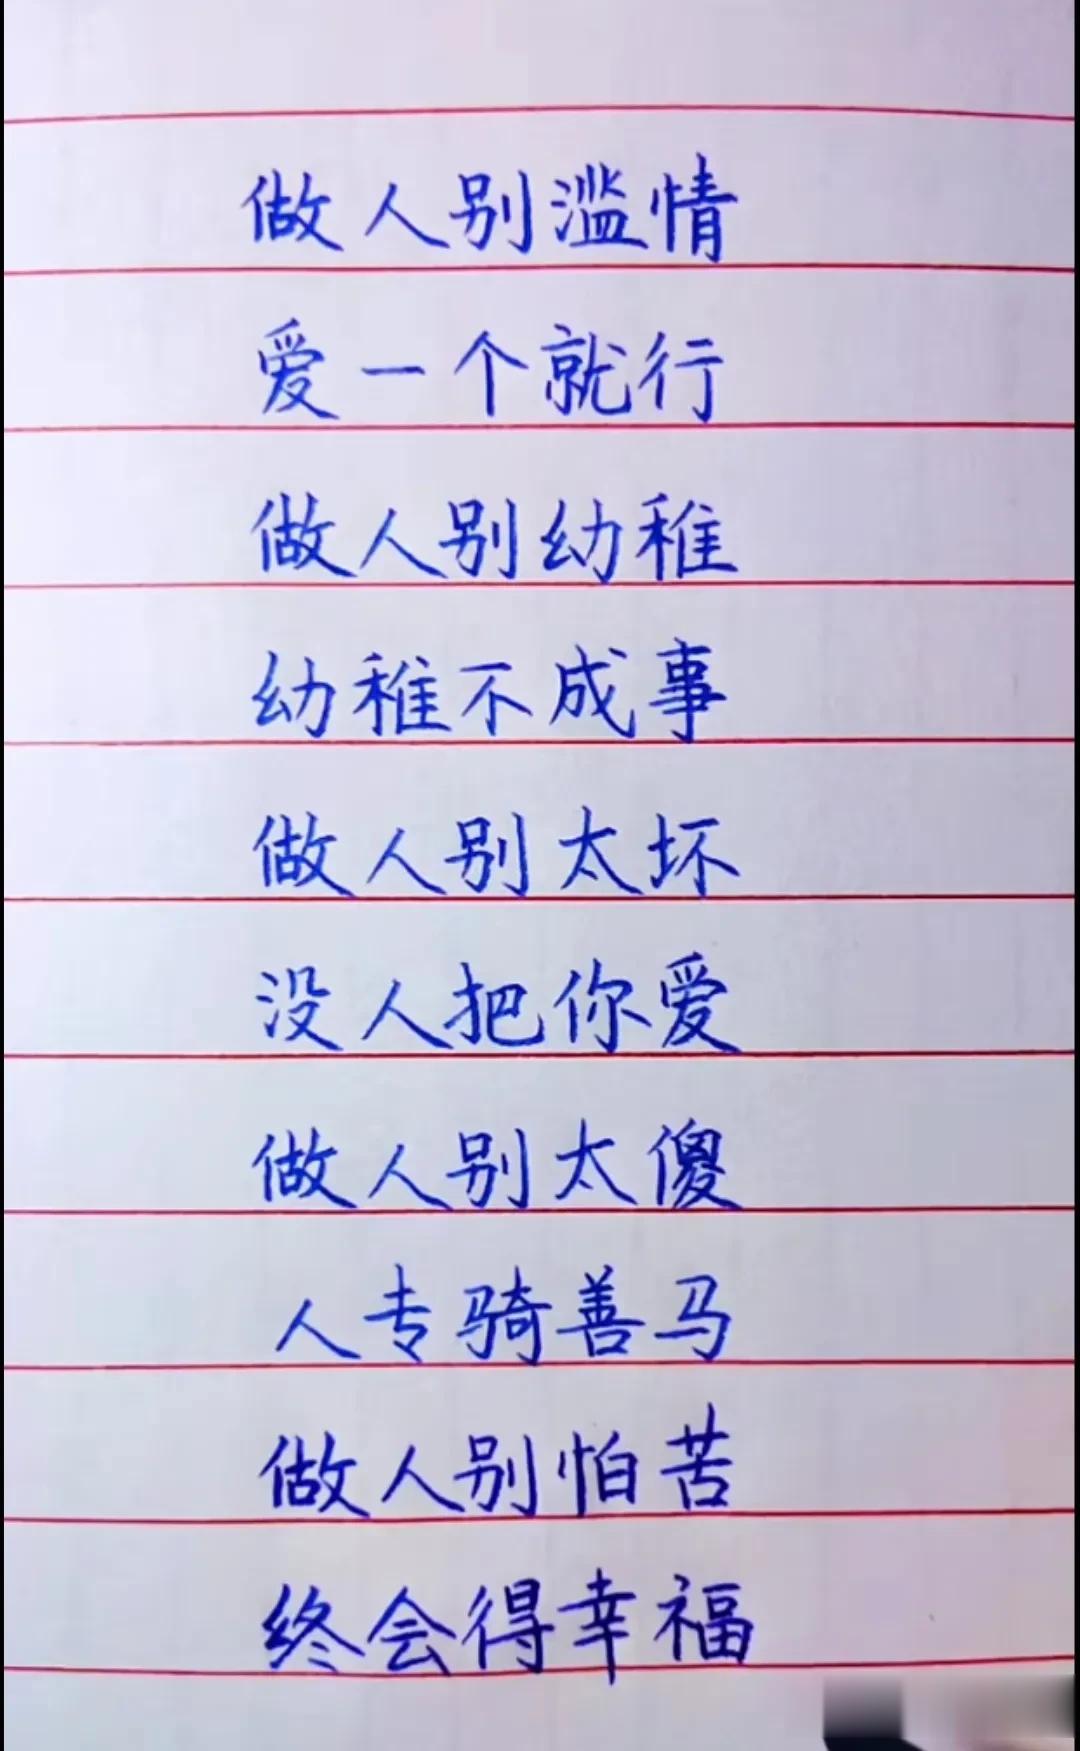 做人别滥情
爱一个就行
做人别幼稚
幼稚不成事
做人别太坏
没人把你爱
做人别太傻
人专骑善马
做人别怕苦
终会得幸福